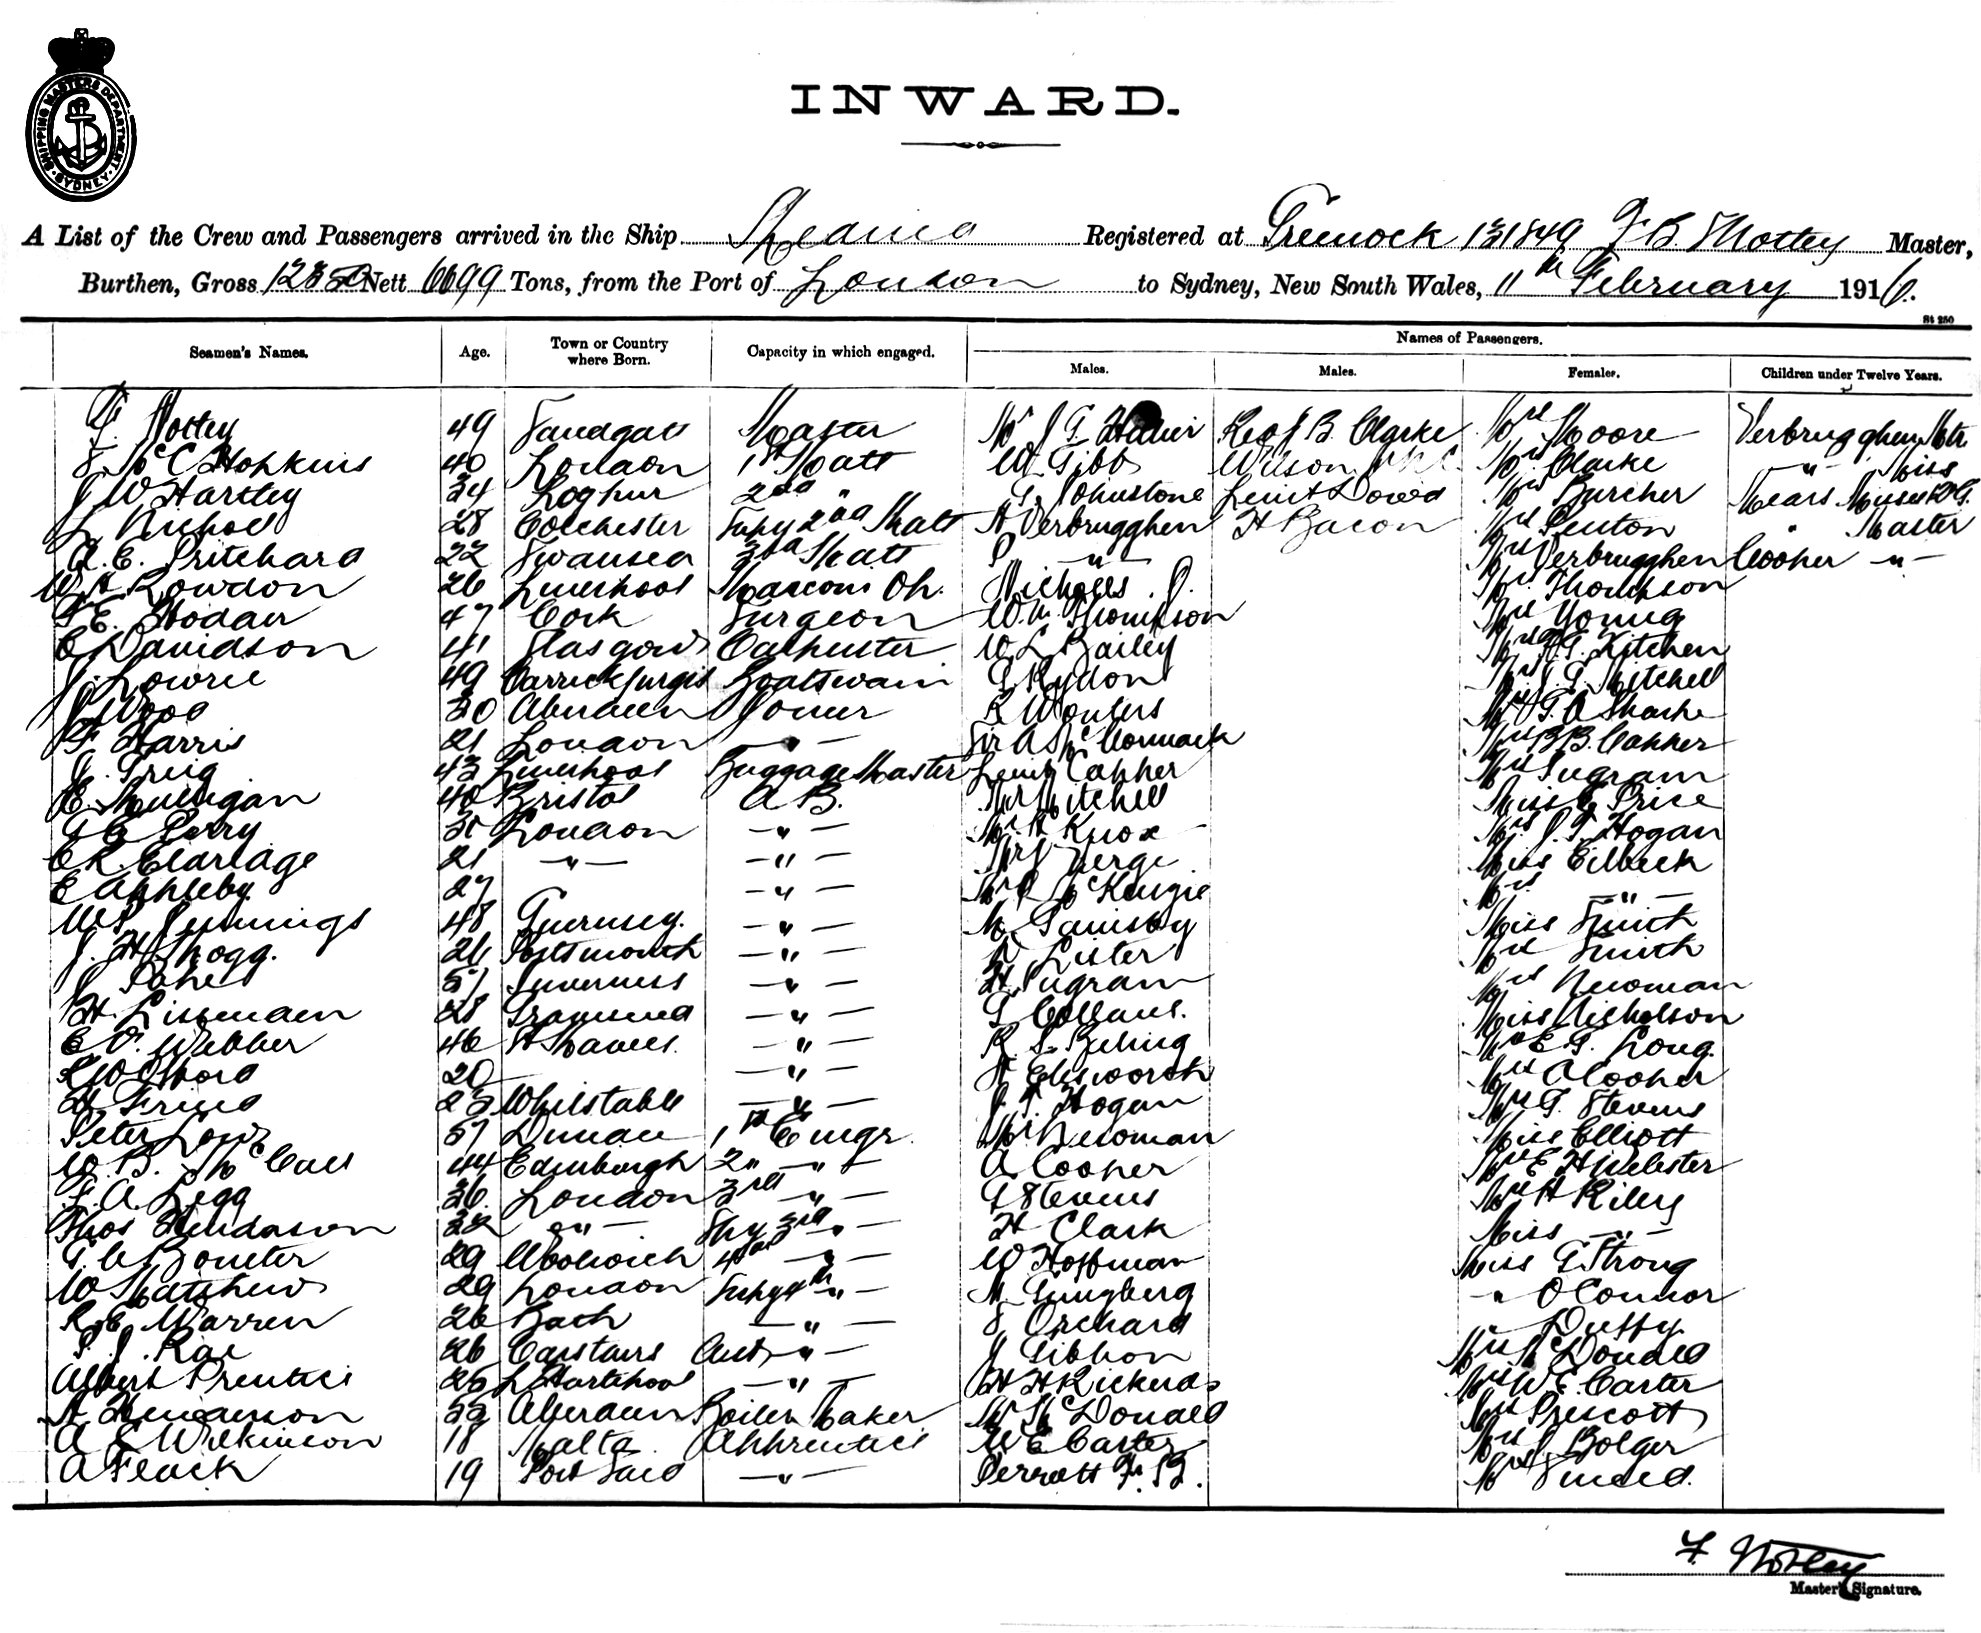 SHIPPING MASTERS DEPARTMENT
SYDNEY
INWARD.
A List of the Crew and Passengers arrived in the Ship Registered at 131849 Master,
Burthen, Gross Nett 6699 Tons, from the Port of London to Sydney, New South Wales, 11th February 1916.
St 250
Seamen's Names. Age. Town or Country where Born. Capacity in which engaged. Names of Passengers.
Males. Males. Females. Children under Twelve Years.
F. Notley 49 Sandgate Master Mr J G Revd J B Clarke Mrs Moore Verbrugghen Mstr
Mc C Hopkins 40 London 1st Mate W Gibb Wilson Mrs Clarke " Miss
J W Hartley 34 2nd " G Johnstone Lieut Dowd Mrs Burcher Mears Misses
L Nicholl 28 Colchester Supy 2nd Mate A Verbrugghen H Bacon Mrs Penton " Master
A. E. Pritchard 22 Swansea 3rd Mate P " Mrs Verbrugghen Cooper "
W. A. Rowdon 26 Liverpool Marconi Op. Nicholls J. Mrs Thompson
47 Cork Surgeon W. M. Thompson Mrs Young
C Davidson 41 Glasgow Carpenter W L Bailey Mrs Kitchen
J. Lowrie 49 Carrickfergus Boatswain G Rydon Mrs J G Mitchell
J Wood 30 Aberdeen Joiner R Wouters Mrs
F Harris 21 London " Sir A McCormack Mrs B B. Capper
J. Greig 43 Liverpool Baggage Master Lieut Capper Mrs Ingram
E Mulligan 40 Bristol A B. Mr Mitchell Miss E Price
G C Perry 30 London " Mr H Knox Mrs J. T. Hogan
E R. Claridge 21 " " Mr J Verge Miss Eilbeck
E Appleby 27 " Mr R McKenzie Mrs "
W S Jennings 48 Guernsey. " Mr Miss Smith
J. H. Shogg. 26 Portsmouth " Lister Mrs Smith
J 57 Inverness " H Ingram Mrs Newman
H. Lissmaen 28 Gravesend " G Collans. Miss Nicholson
E V. Webber 46 " R S. Mrs E G. Long.
20 " A Edesworth Mrs A Cooper
H Friend 23 Whitstable " J. T. Hogan Mrs G. Stevens
Peter Low 57 Dundee 1st Engr. Mr Newman Miss Elliott
W. B. McCall 44 Edinburgh 2nd " A Cooper Mrs E H Webster
F. A. Legg 36 London 3rd " G Stevens Mrs H Riley
Thos Henderson 32 " Supy 3rd " H Clark Miss "
29 Woolwich 4th " W Hoffman Miss G Strong
W Matthews 29 London Supy 4th " M. Lungberg " O'Connor
R. E. Warren 26 Bath " S Orchard " Duffy
P. J. Rae 26 Carstairs Asst " J Gibbon Mrs McDonald
Albert Prentice 25 W Hartlepool " H H Rickerds Mrs W E. Carter
A Henderson 33 Aberdeen Boiler Maker Mr McDonald Mrs Prescott
A E Wilkinson 18 Malta Apprentice W E Carter Mrs J Bolger
A Flack 19 Port Said " Perrett Mrs Smeed.
F. Notley
Master's Signature.